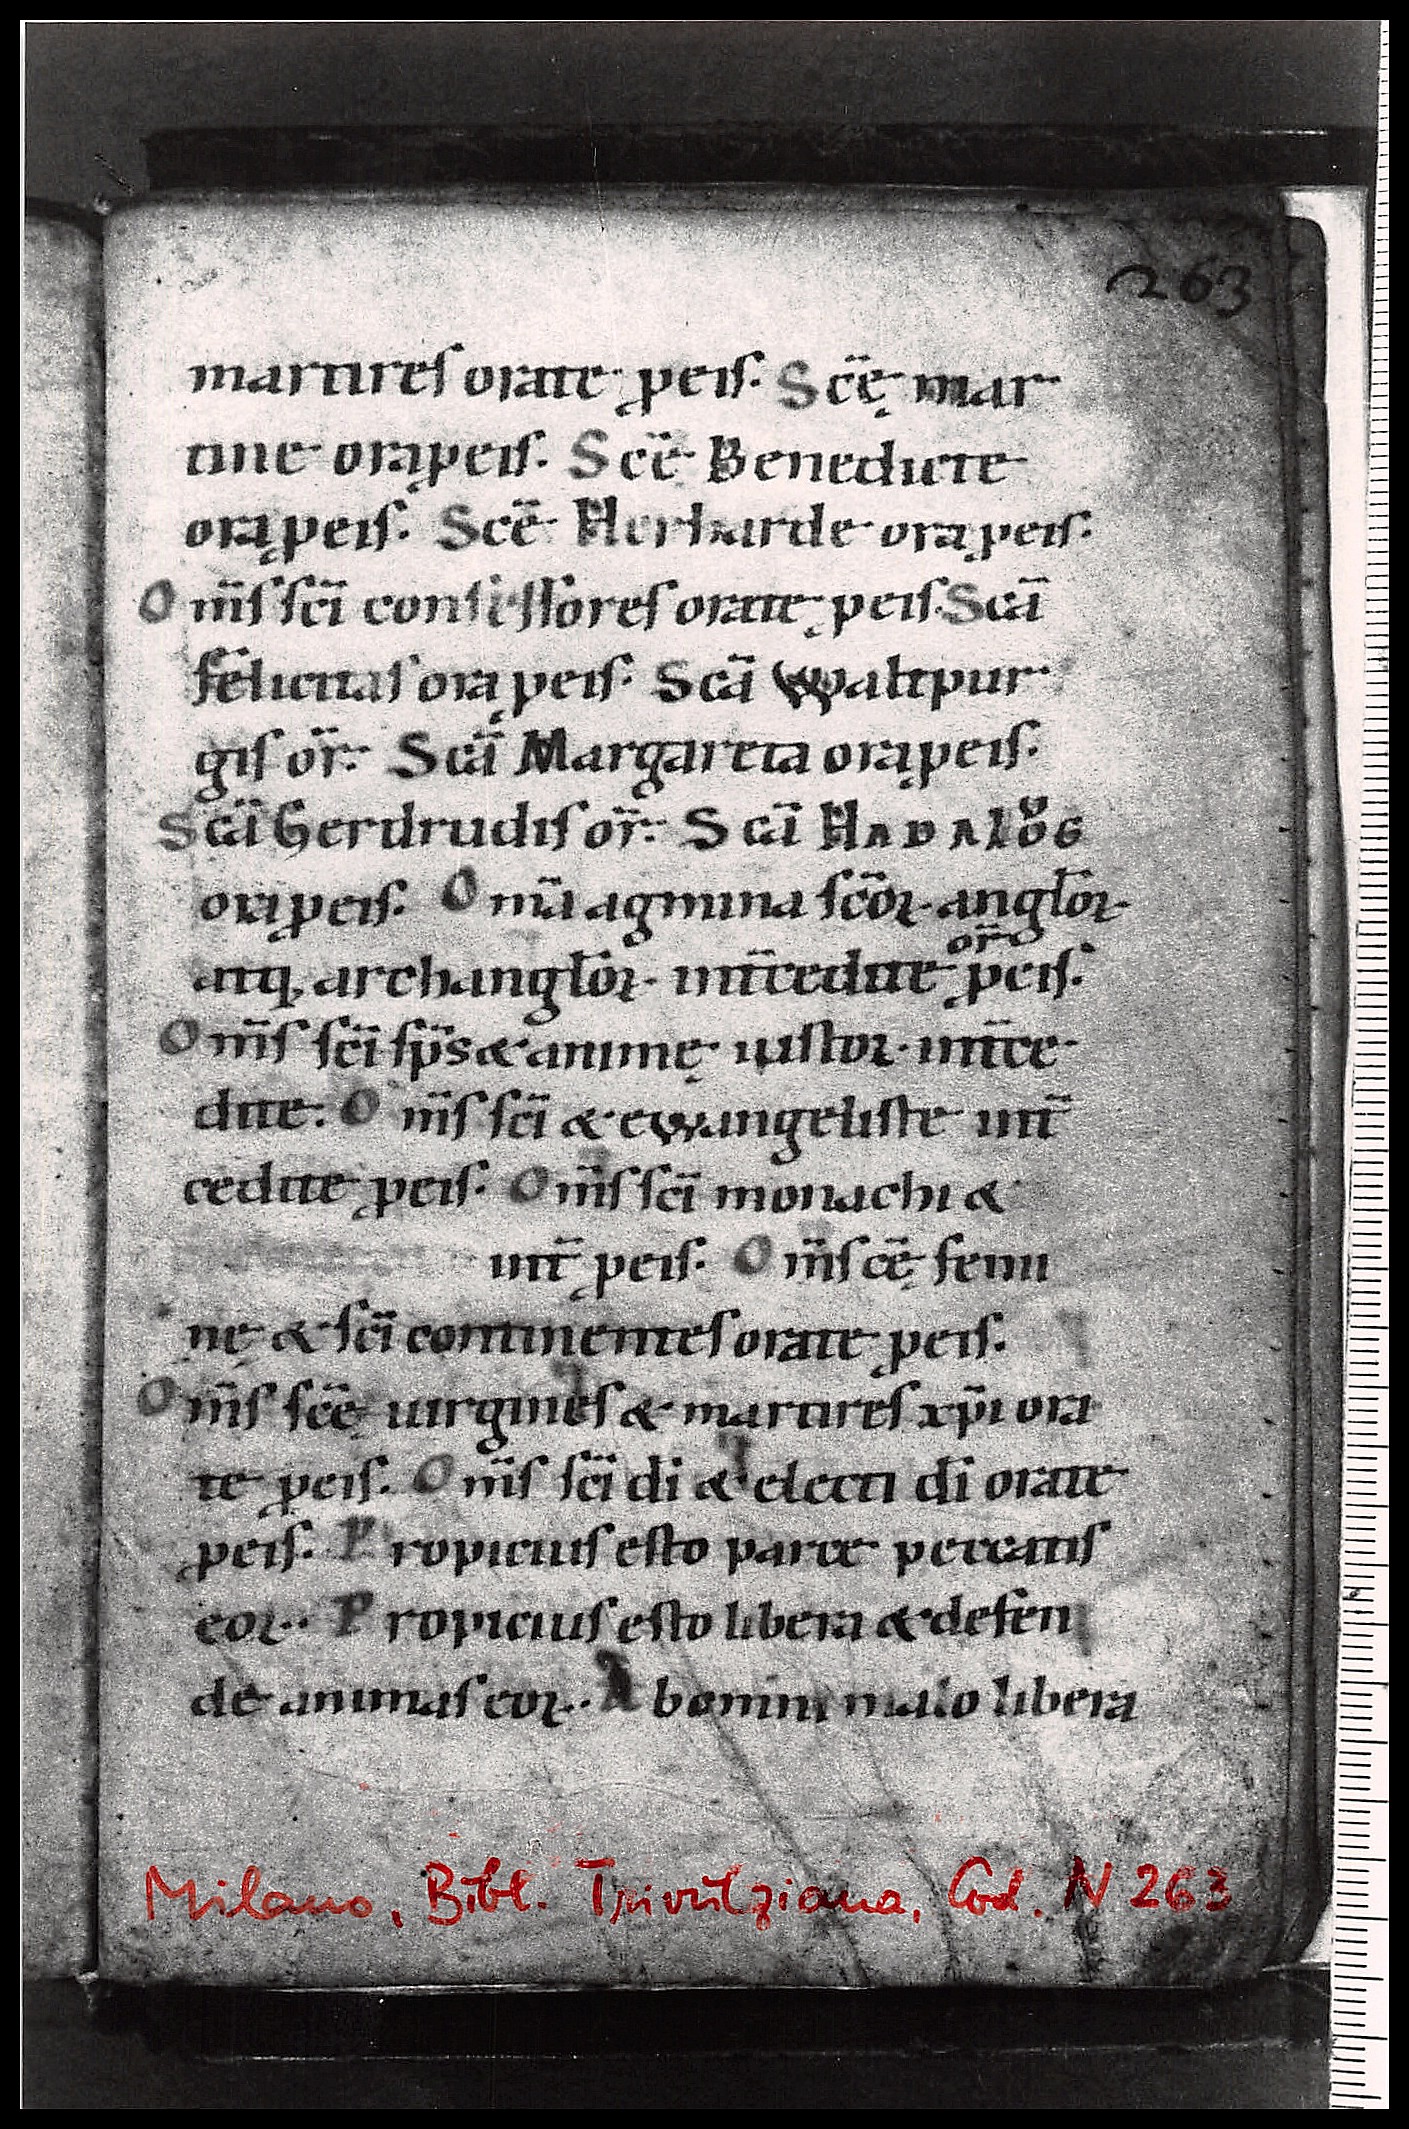 263
martires orate ꝑeis. Scę̄ mar
tine orą ꝑeis. Scē Benedicte
orą ꝑeis. Scē Herharde ora ꝑeis.
Om̄s sc̄i confessores orate ꝑeis. Scā
felicitas orą ꝑeis. Scā Waltpur
gis or̄. Scā Margareta orą ꝑeis.
Scā Gerdrudis or̄. Scā Hadaloͮg
ora ꝑeis. Om̄a agmina sc̄oꝝ anglōꝝ
atq; archanglōꝝ int̄cedite ꝑeis.
or̄
Om̄s sc̄i sp̄s & animę iustoꝝ int̄ce
dite. Om̄s sc̄i & ewangeliste int̄
cedite ꝑeis. Om̄s sc̄i monachi &
int̄ ꝑeis. Om̄s cę̄ femi
nę & sc̄i continentes orate ꝑeis.
Om̄s sc̄ę uirgines & martires xp̄i ora
te ꝑeis. Om̄s sc̄i di & electi dī orate
ꝑeis. Propicius esto parce peccatis
eoꝝ. Propicius esto libera & defen
de animas eoꝝ. Ab omīni malo libera
Milano, Bibl. Trivulziana, Cod. N 263